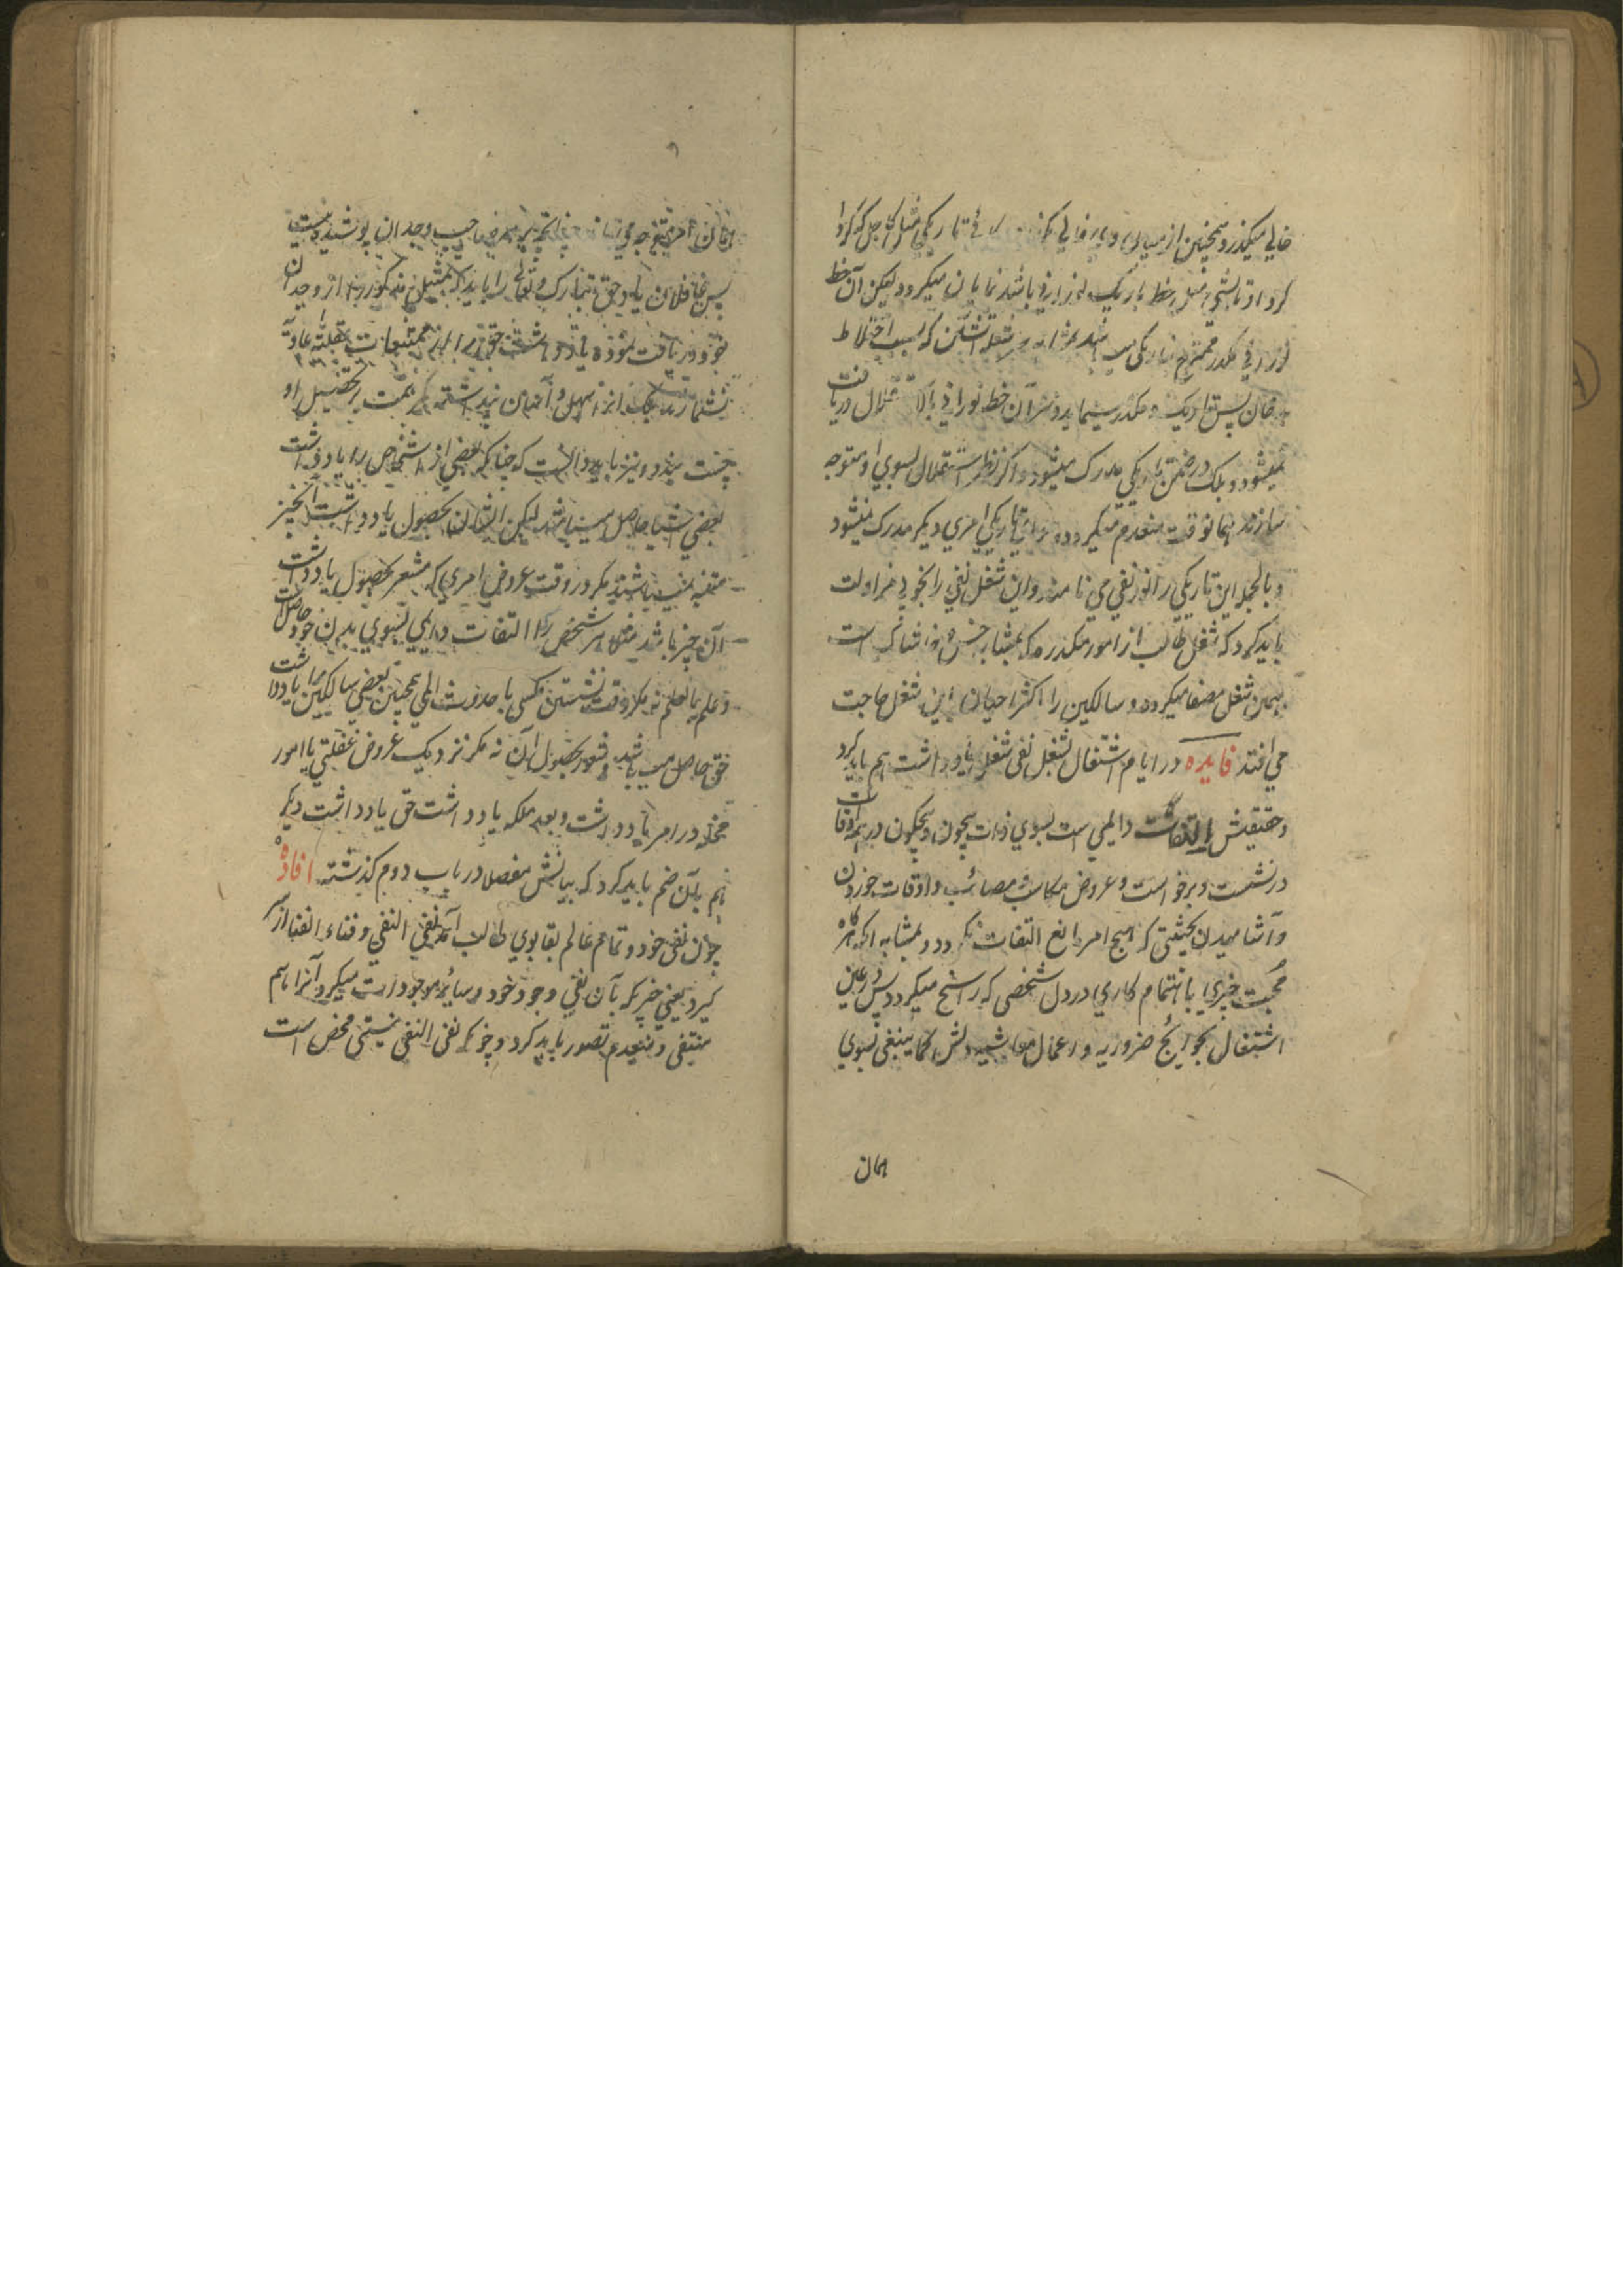 خالی میگذرد همچنین از میان
گردا تابشی مثل خط باریک نورانی باشد نمایان میگردد لیکن آن خط
نورانی مکدر ممتزج بتاریکی که بسبب اختلاط
دخان پس تاریک و مکدر مینماید و آن خط نورانی بالاستقلال دریافت
نمیشود و بلکه در ضمن تاریکی مدرک میشود و اگر نظر استقلال بسوی او متوجه
سازند همانوقت منعدم میگردد و تاریکی امری دیگر مدرک نمیشود
و بالجمله این تاریکی را نور نفی می نامند و این شغل نفی را بخوبی مزاولت
باید کرد که شغل طالب از امور مکدره که بمشابه خس و خاشاک است
بهمین شغل مصفا میگردد و سالکین را اکثر احیان این شغل حاجت
می افتد فایده در ایام اشتغال بشغل نفی شغل یادداشت هم باید کرد
و حقیقتش التفات دایمی است بسوی ذات بیچون و بیچگون در همه اوقات
در نشست و برخواست و عروض مکاسب و مصائب و اوقات خوردن
و آشامیدن بحیثیتی که هیچ امر مانع التفات نگردد و بمشابه آنکه هرگاه
محبت چیزی یا اهتمام کاری در دل شخصی که راسخ میگردد پس در عین
اشتغال بحوائج ضروریه و اعمال معاشیه دلش کما ینبغی بسوی
همان
همان امر متوجه می باشد چنانچه بر هر صاحب وجدان پوشیده نیست
پس غافلان یاد حق تبارک و تعالی را باید که بمثیل مذکوره از وجدان
خود دریافت نموده یادداشت حق را از ممتنعات عقلیه عادیه
نشمارند بلکه آنرا سهل و آسان پنداشته کمر همت بر تحصیل او
چست بندد و نیز باید دانست که چنانکه بعضی از اشخاص را یادداشت
بعضی اشیا حاصل میباشد لیکن ایشان بحصول یادداشت آنچیز
متنبه نمیباشند مگر در وقت عروض امری که مشعر بحصول یادداشت
آن چیز باشد مثلا هر شخص را التفات دایمی بسوی بدن خود حاصل است
و علم بالعلم نه مگر وقت نشستن مگسی یا حدوث المی همچنین بعضی سالکین را یادداشت
حق حاصل میباشد و شعور بحصول آن نه مگر نزدیک عروض غفلتی یا امور
مخله در امر یادداشت و بعد ملکه یادداشت حق یادداشت دیگر
هم بآن ضم باید کرد که بیانش مفصلا در باب دوم گذشته افاده
چون نفی خود و تمام عالم بقابوی طالب آمد نفی النفی و فناء الفنا از سر
گیرد یعنی چیزیکه بآن نفی وجود خود و سایر موجودات میکرد آنرا هم
منتفی و منعدم تصور باید کرد و چونکه نفی النفی نیستی محض است